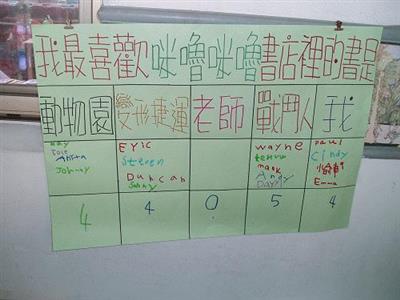 我最喜歡咪嚕咪嚕書店裡的書是
動物園 變形捷運 老師 戰鬥人 我
Ray Eric wayne Paul
Steven Cindy
Anita Duncan mark
Johnny Sunny Andy Emma
4 4 0 5 4